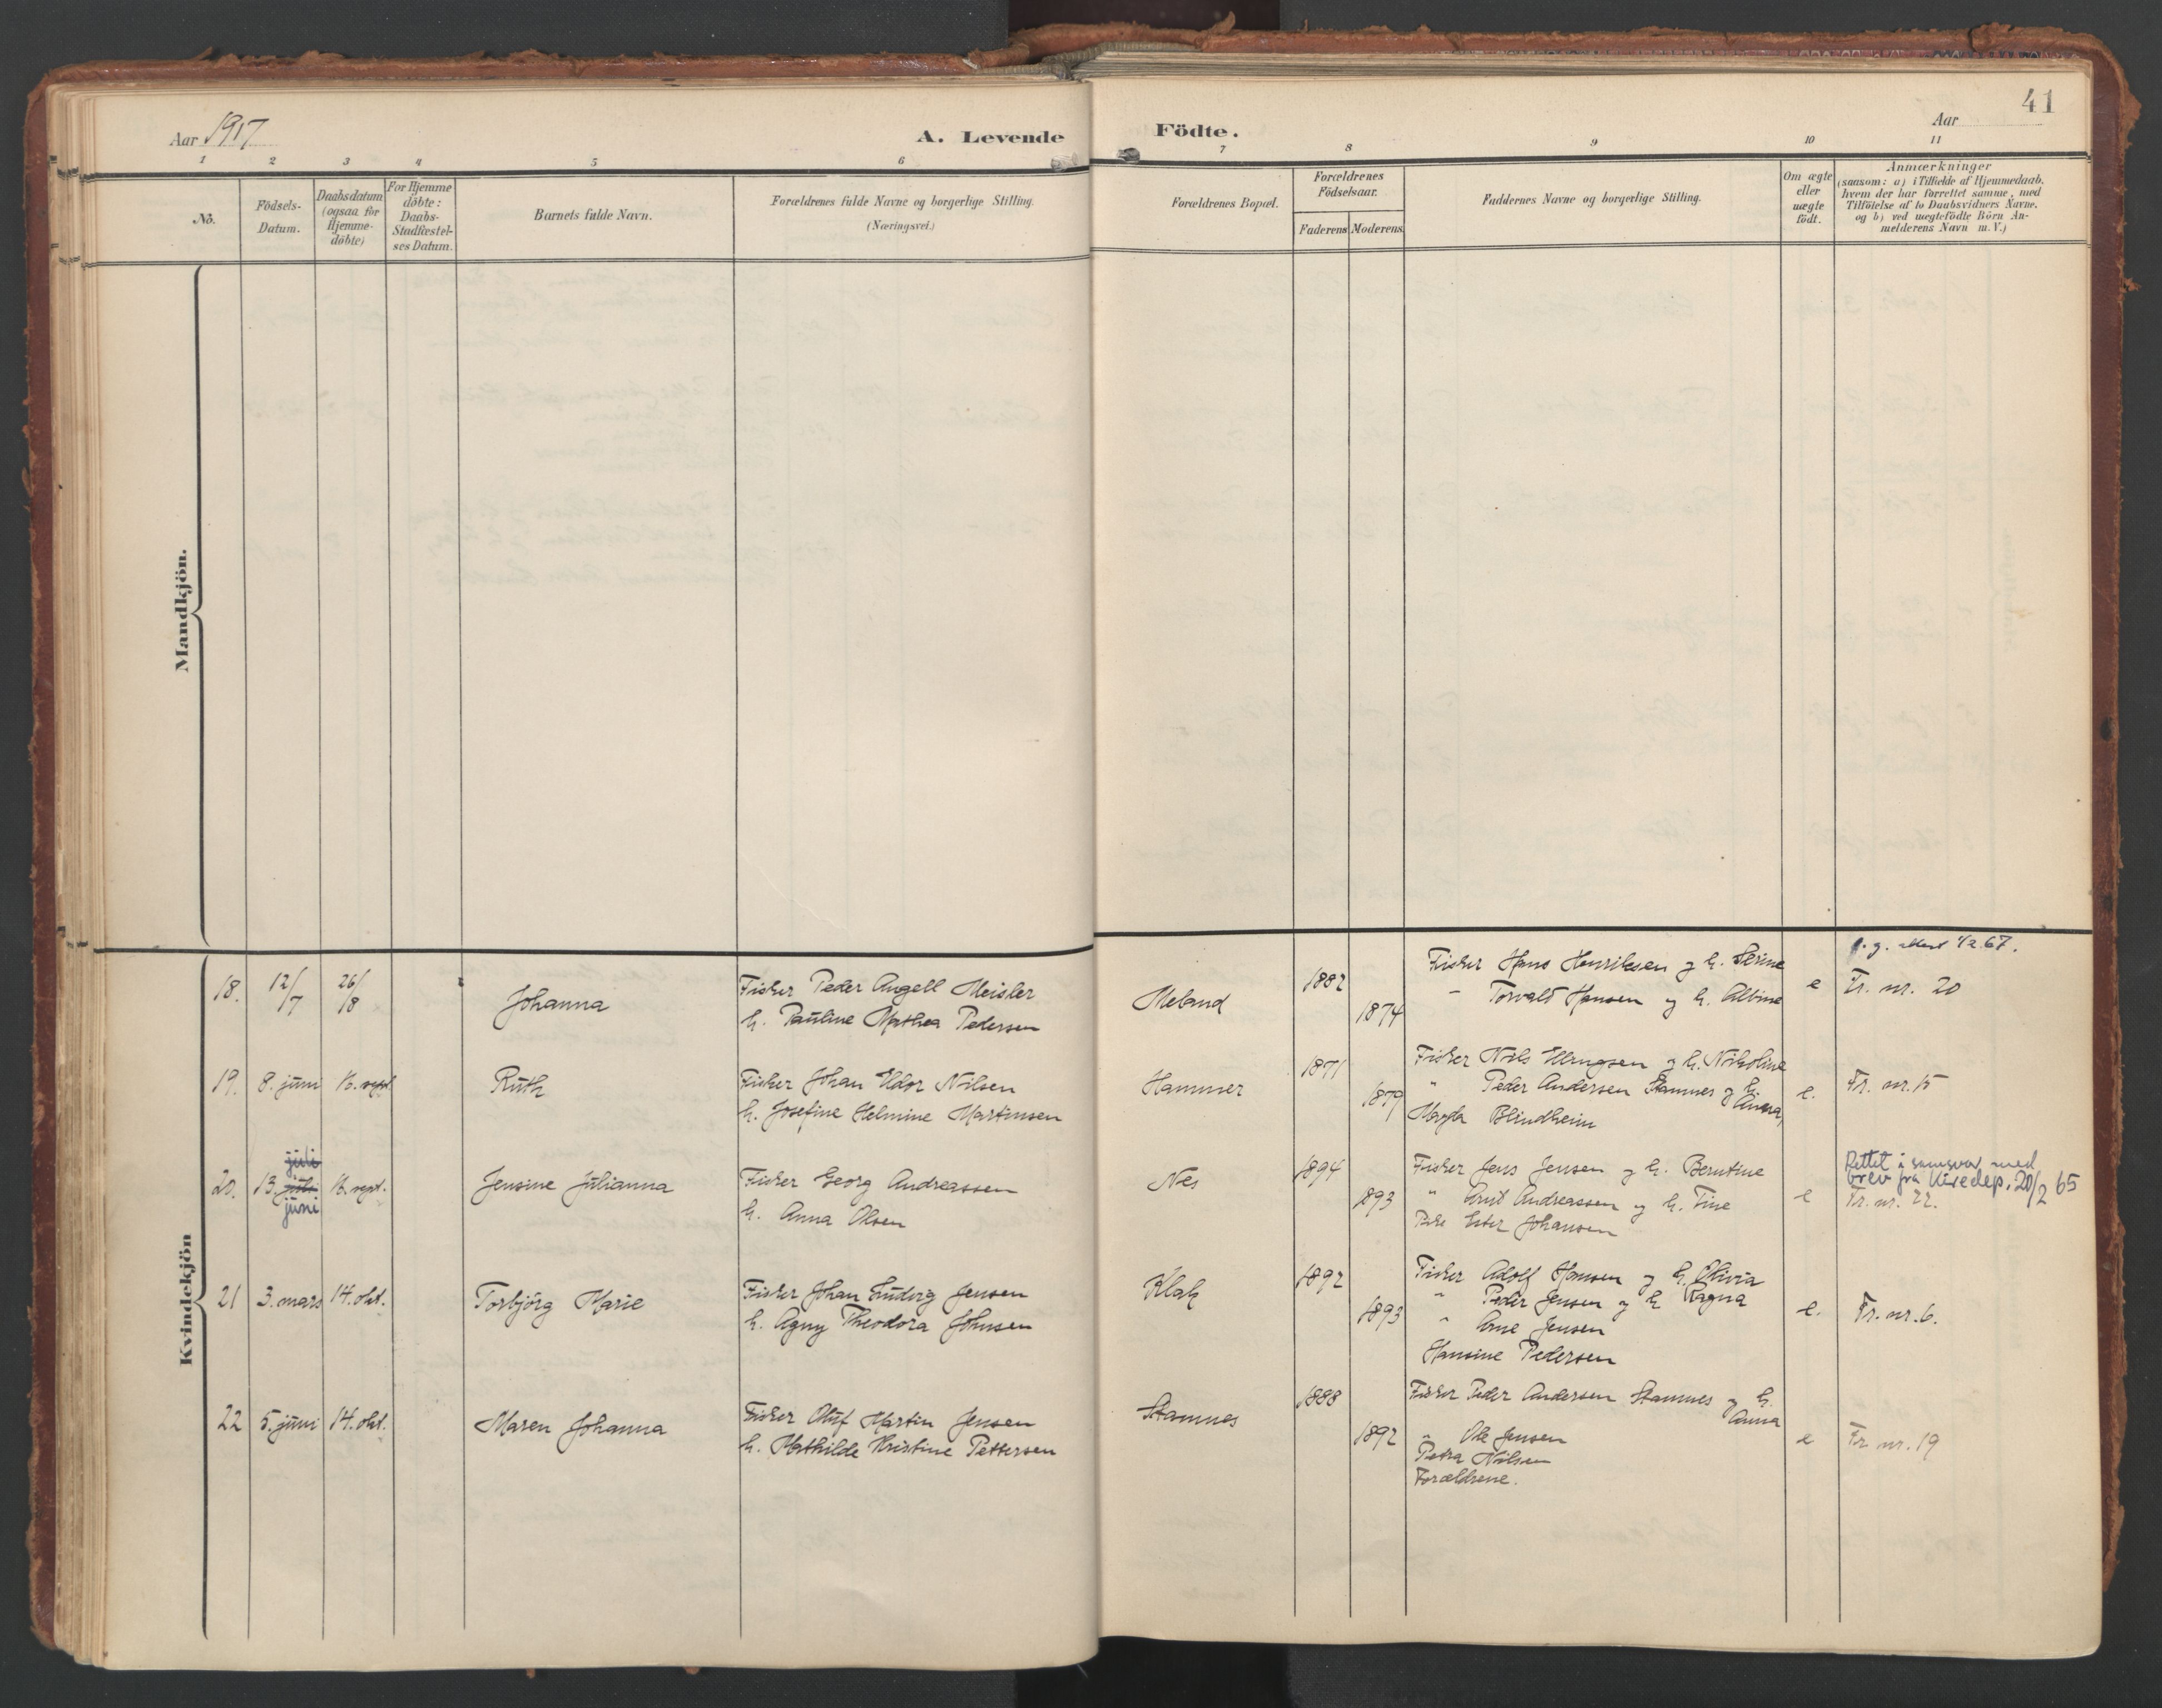 Aar 1917
A. Levende
Födte.
Aar
41
1 2 3 4 5 6 7 8 9 10 11
No.
Födsels-
Datum.
Daabsdatum
(ogsaa for
Hjemme-
döbte)
For Hjemme
döbte:
Daabs-
Stadfæstel-
ses Datum.
Barnets fulde Navn.
Forældrenes fulde Navne og borgerlige Stilling.
(Næringsvei.)
Forældrenes Bopæl.
Forældrenes
Födselsaar.
Faderens Moderens
Faddernes Navne og borgerlige Stilling.
Om ægte
eller
uægte
födt.
Anmærkninger
(saasom: a) i Tilfælde af Hjemmedaab.
hvem der har forrettet samme, med
Tilföielse af to Daabsvidners Navne.
og b) ved uægtefödte Börn An-
melderens Navn m.V.)
Mandkjön.
Kvindekjön
18.
12/7
26/8
Johanna
Fisker Peder Angell Meisler
h. Pauline Mathea Pedersen
Meland
1882
1874
Fisker Hans Henriksen og h. Serine
" Torvald Hansen og h. Albine
e
1/2.67.
Fr. nr. 20
19.
8. juni
16. sept
Ruth
Fisker Johan Eldor Nilsen
h. Josefine Helmine Martinsen
Hammer
1871
1879
Fisker Nils Ellingsen og h. Nikoline
" Peder Andersen Stamnes og h.
Anna,
Magda Blindheim
e.
Fr. nr. 15
20.
juli
13. juli
juni
16. sept.
Jensine Julianna
Fisker Georg Andreassen
h. Anna Olsen
Nes
1894
1893
Fisker Jens Jensen og h. Berntine
" Arnt Andreassen og h. Tine
Pike Ester Johansen
e
Rettet i samsvar med
brev fra Kiredep. 20/2 65
Fr. nr. 22.
21
3. mars
14. okt.
Torbjörg Marie
Fisker Johan Ludvig Jensen
h. Agny Theodora Johnsen
Klak
1892
1893
Fisker Adolf Hansen og h. Olivia
" Peder Jensen og h. Ragna
" Arne Jensen
Hansine Pedersen
e.
Fr. nr. 6.
22
5. juni
14. okt.
Maren Johanna
Fisker Oluf Martin Jensen
h. Mathilde Kristine Pettersen
Stamnes
1888
1892
Fisker Peder Andersen Stamnes og h.
Anna
" Ole Jensen
Petra Nilsen
Forældrene.
e
Fr nr. 19